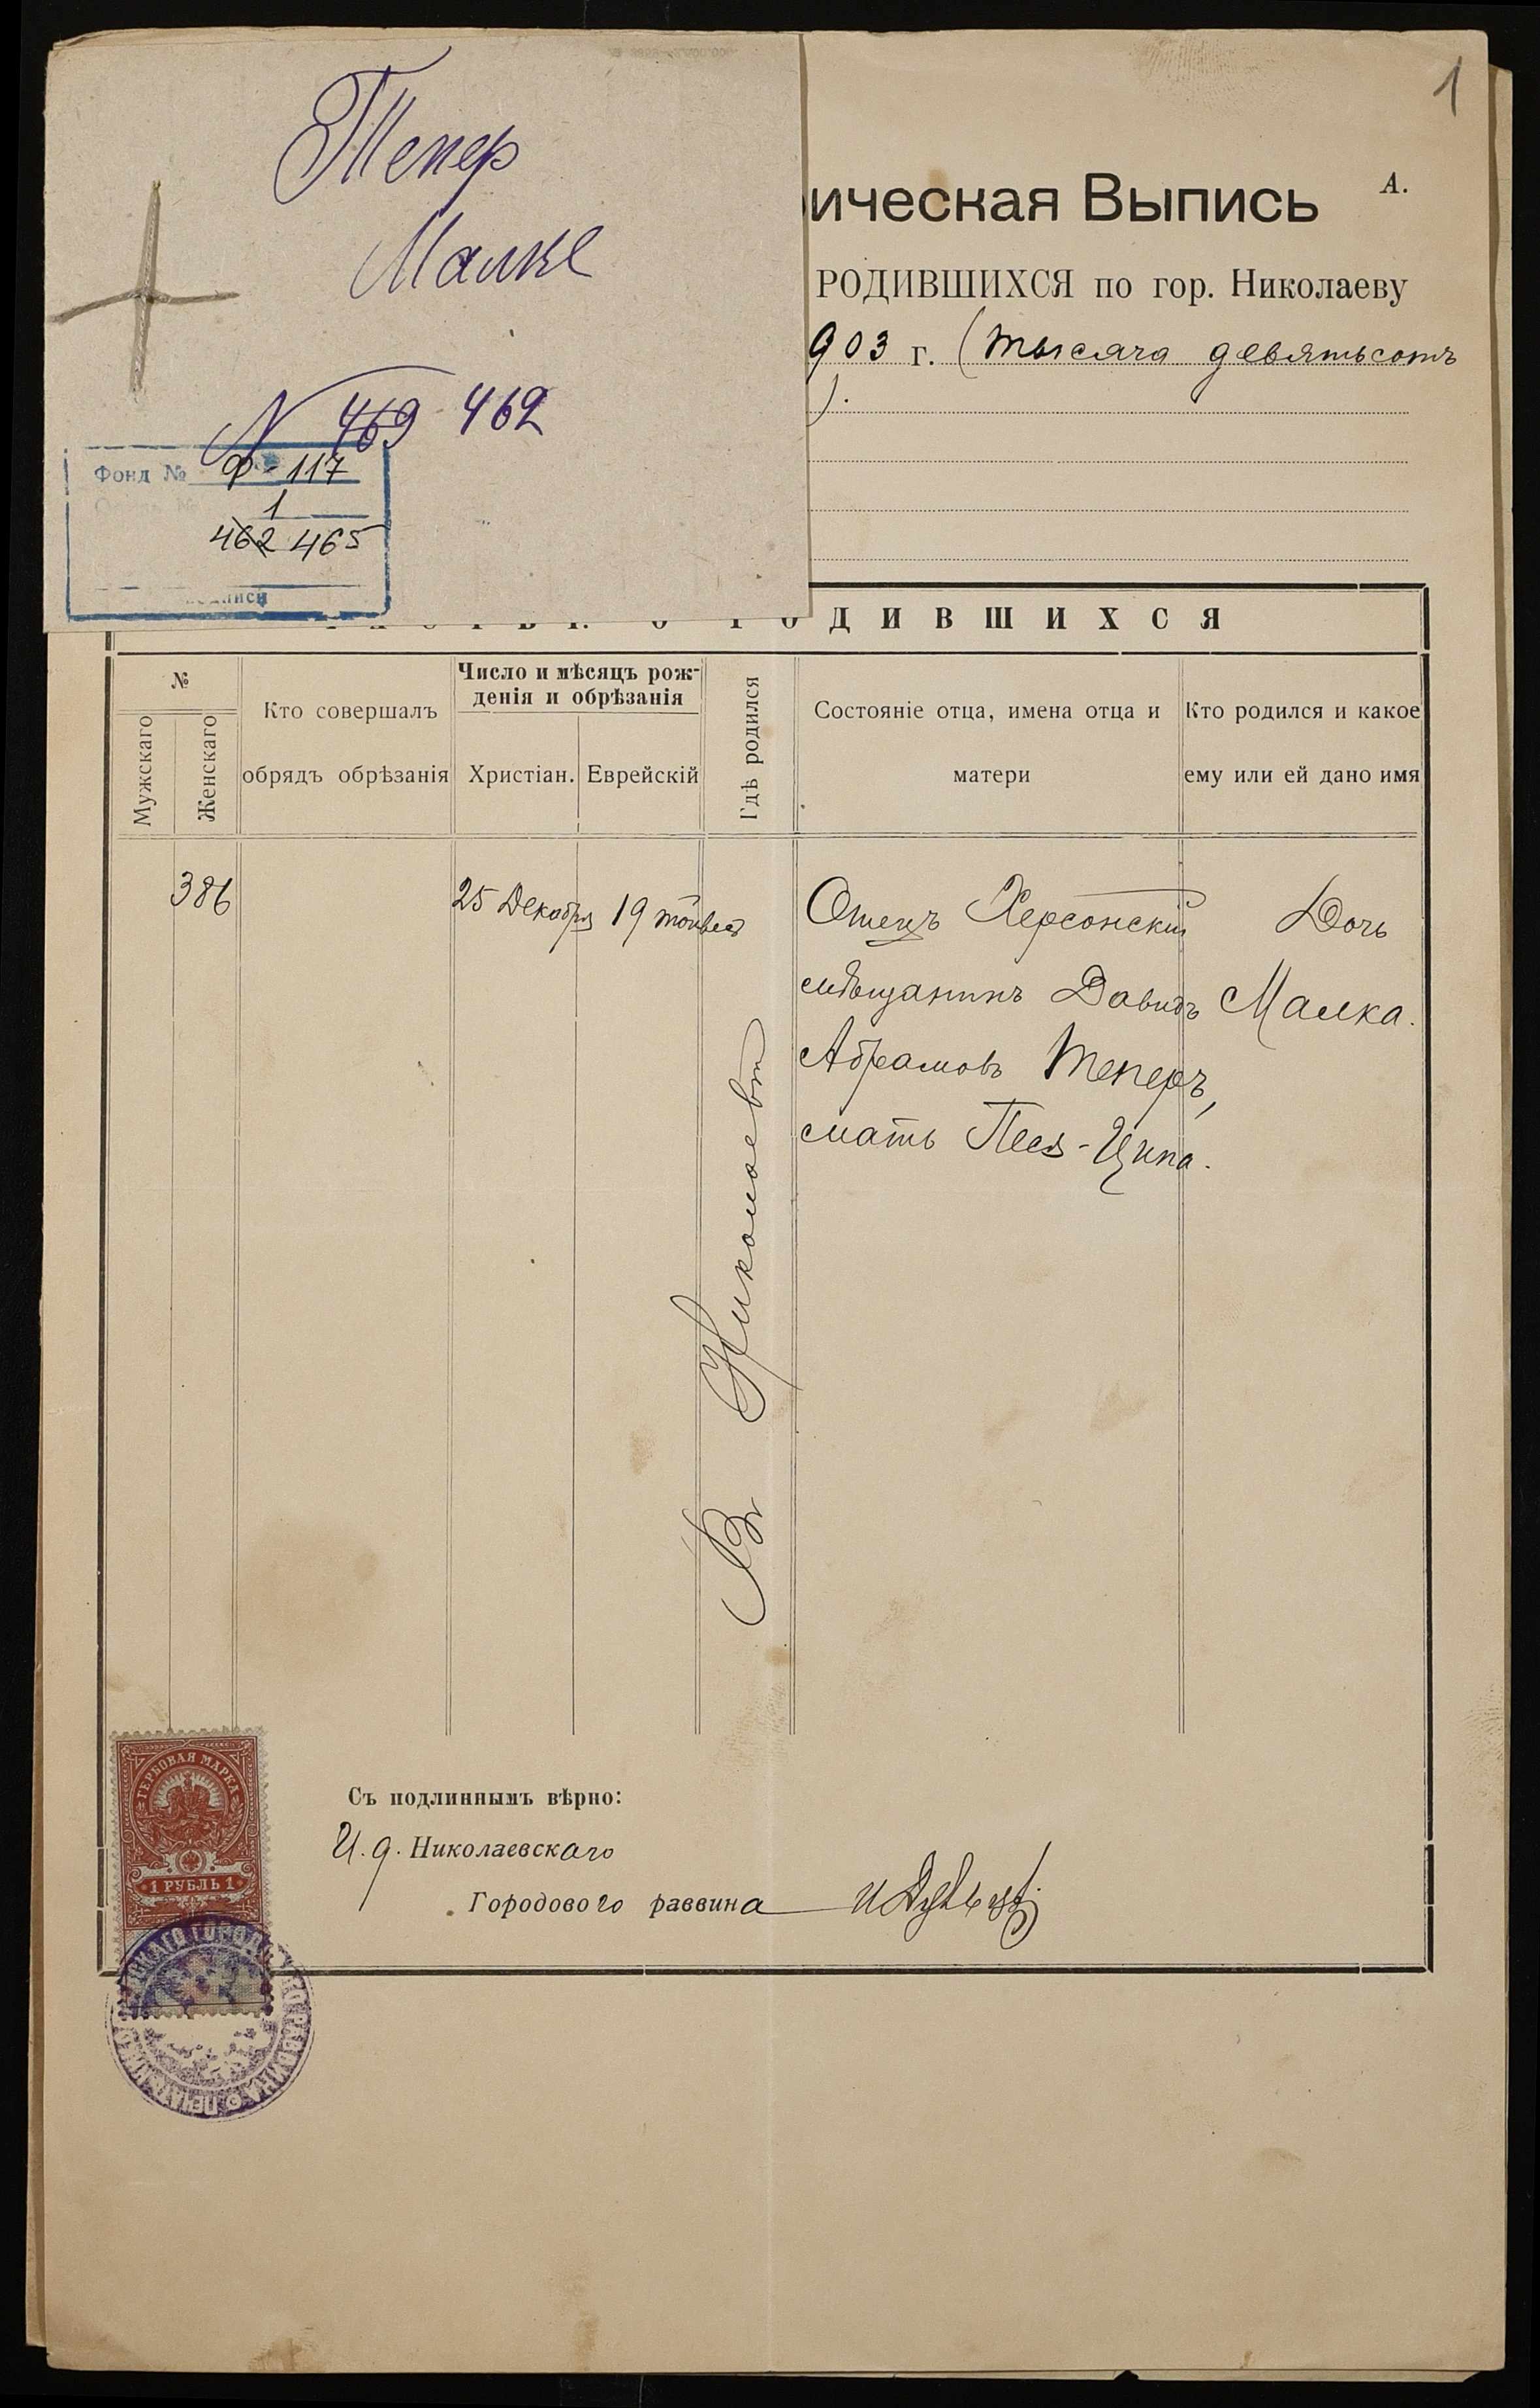 Тепер
Малке
N 469 462
Фонд № Ф-117
1
462 465
1
А.
ическая Выпись
РОДИВШИХСЯ по гор. Николаеву
903 г. (тысяча девятьсотъ
).
О РОДИВШИХСЯ
№
Мужскаго
Женскаго
Кто совершалъ
обрядъ обрѣзанія
Число и мѣсяцъ рож-
денія и обрѣзанія
Христіан.
Еврейскій
Гдѣ родился
Состояніе отца, имена отца и
матери
Кто родился и какое
ему или ей дано имя
386
25 Декабря
19
Въ Николаевѣ
Отецъ Херсонскій
мѣщанинъ Давидъ
Абрамовъ Теперъ,
мать Песя-Ципа.
Дочь
Малка.
ГЕРБОВАЯ МАРКА
1 РУБЛЬ 1
Съ подлиннымъ вѣрно:
И.д. Николаевскаго
Городового раввина